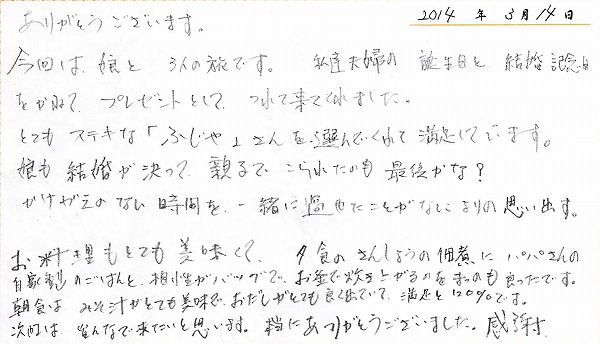 2014年3月14日
ありがとうございます。
今回は、娘と3人の旅です。 私達夫婦の誕生日と、結婚記念日
をかねて、プレゼントとして、つれて来てくれました。
とてもステキな「ふじや」さんを選んでくれて満足しています。
娘も結婚が決って、親子で こられたのも最後かな?
かけがえのない時間を、一緒に過せたことがなによりの思い出す。
お料理もとても美味くて、夕食のさんしょうの佃煮にパパさんの
自家製のごはんと、相性がバツグンで、お釜で炊き上がるのをまつのも良ったです。
朝食は みそ汁がとても美味で、おだしがとても良く出ていて、満足と120%です。
次回は、みんなで来たいと思います。本当にありがとうございました。感謝